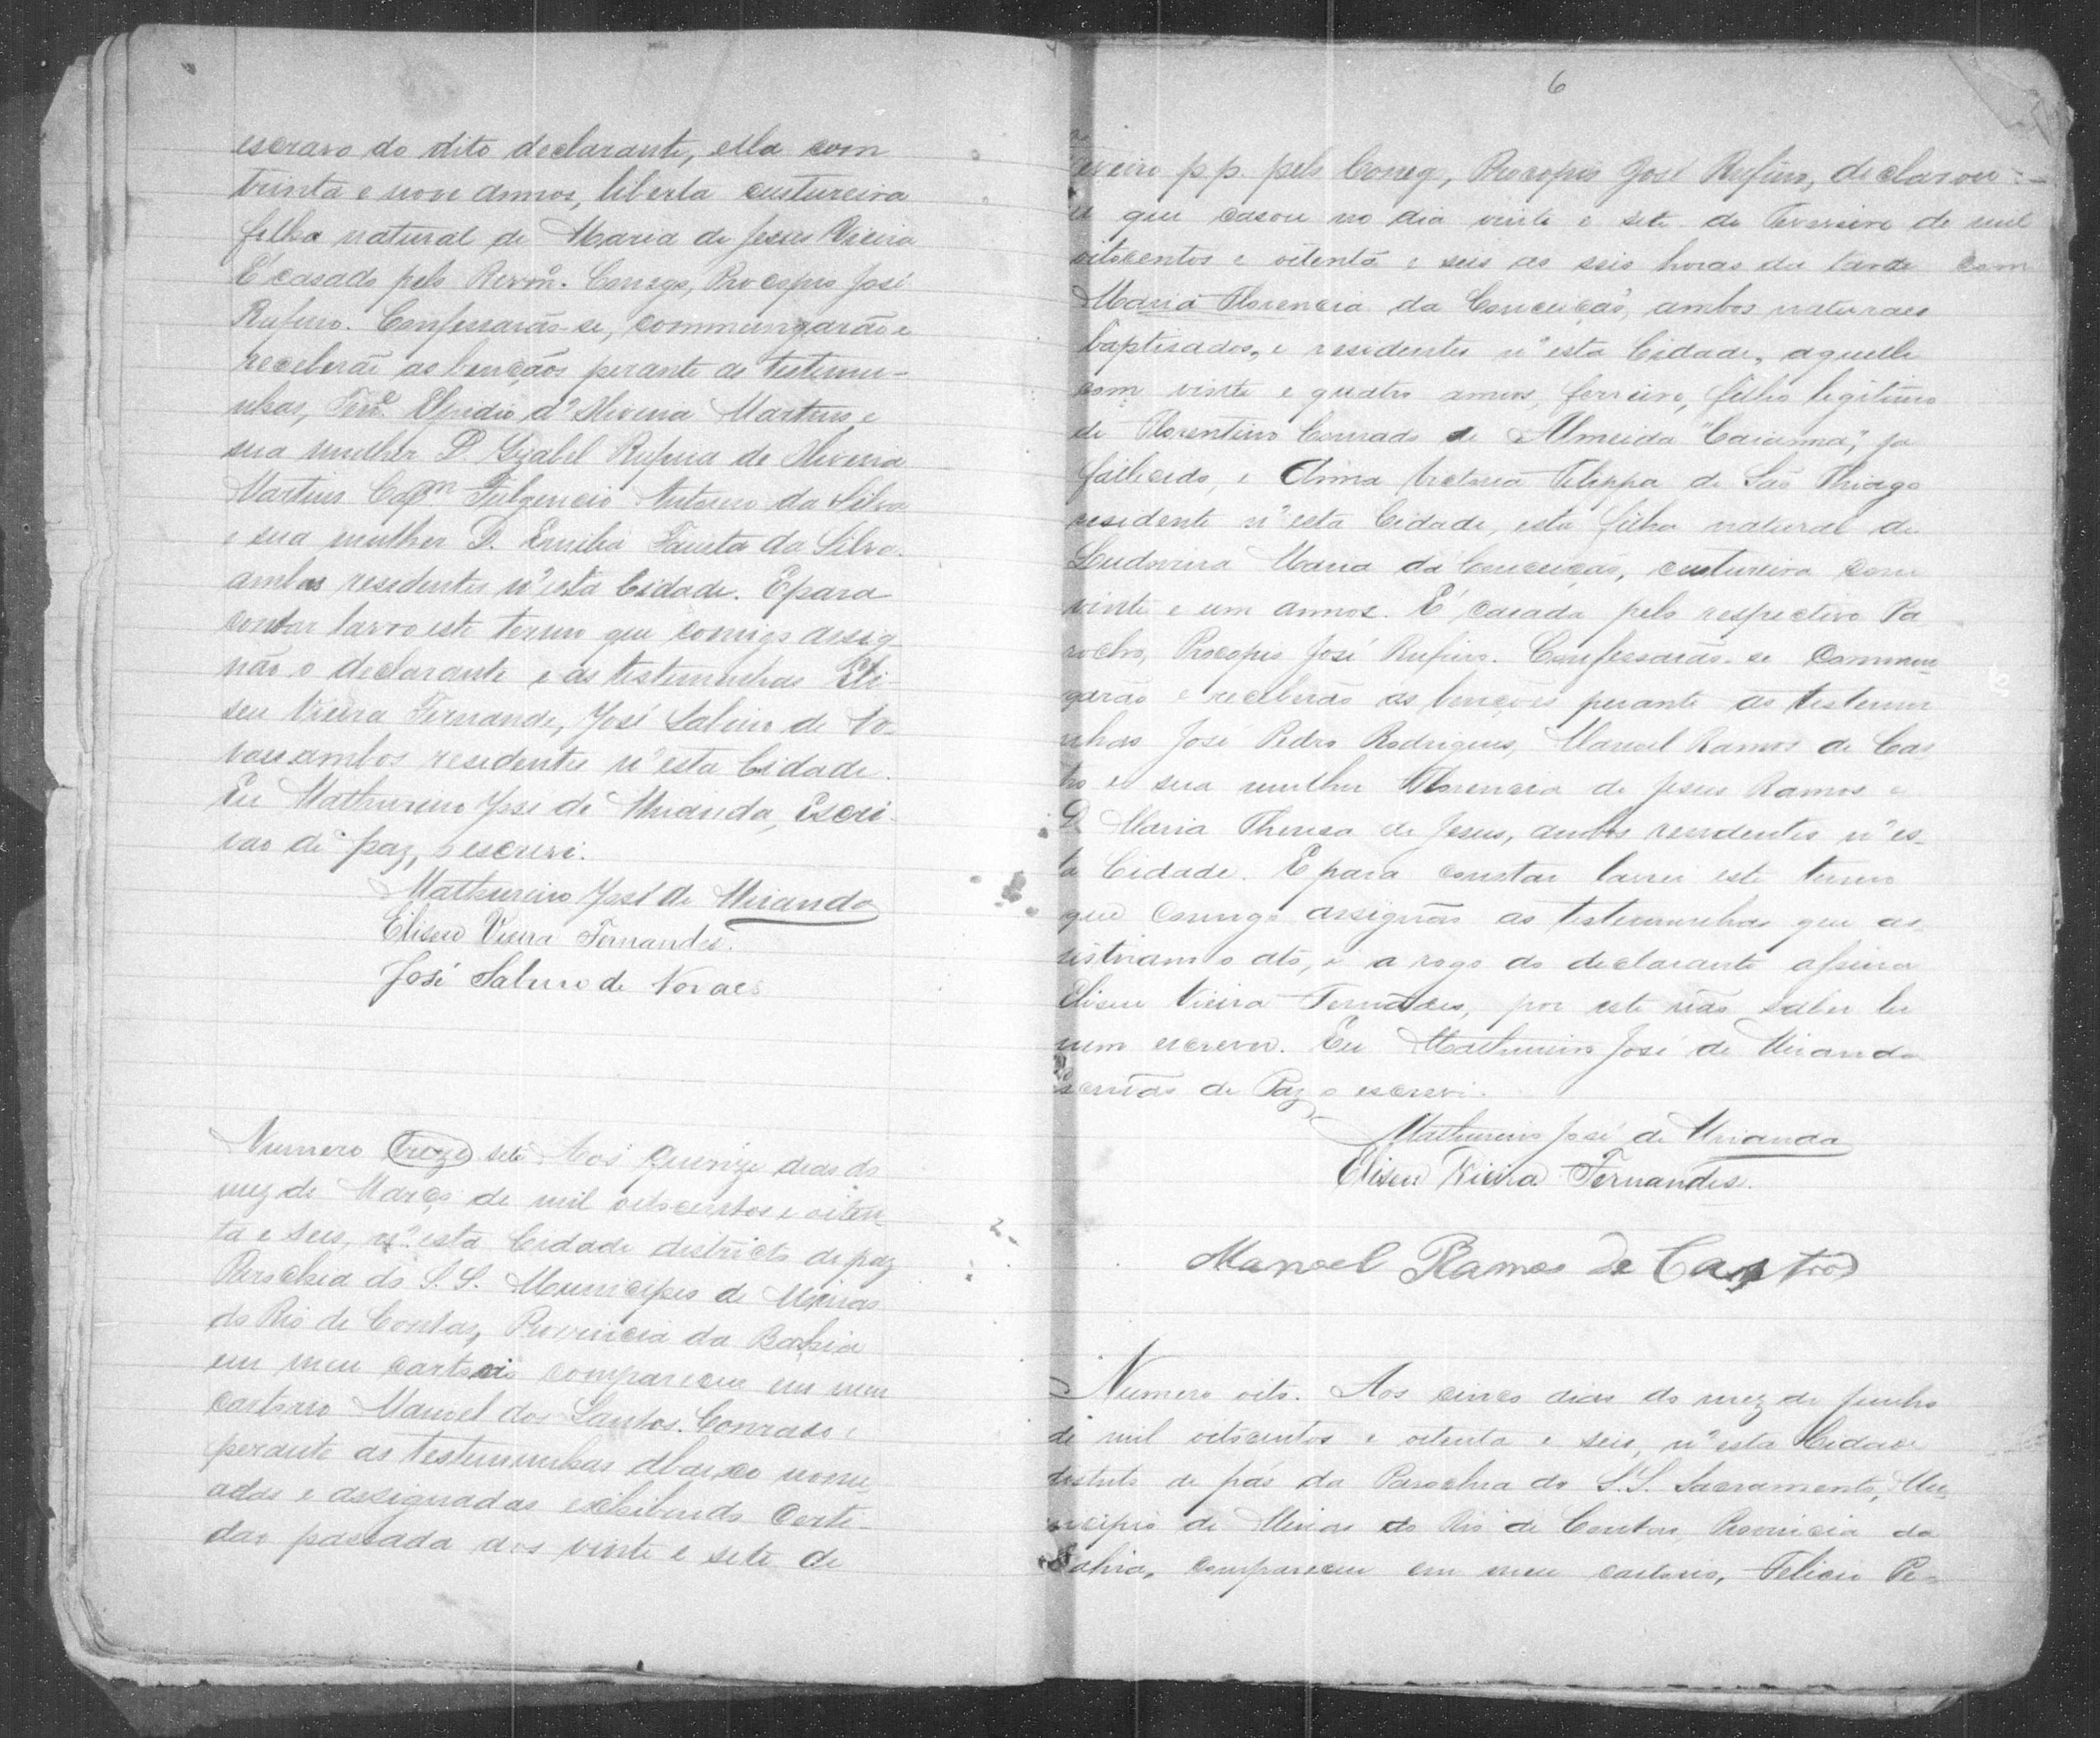 escravo do dito declarante, ella com
trinta e nove annos, liberta custureira
filha natural de Maria de Jesus Vieira
É casado pelo Revmo. Conego, Procopio José
Rufino. Confessarão-se, commungarão e
receberão as bençãos perante as testemu-
nhas, Tene. Elpidio d'Oliveira Martins, e
sua mulher D. Izabel Rufina de Oliveira
Martins Capm Fulgencio Antunes da Silva
e sua mulher D. Emilia Fausta da Silva.
ambos residentes n'esta Cidade. E para
constar lavro este termo que comigo assig-
não o declarante e as testemunhas Eli-
seu Vieira Fernandes, José Salino de No-
vaes ambos residentes n'esta Cidade.
Eu Mathureino José de Miranda, Escri-
vão de paz, o escrevi.
Mathureino José de Miranda
Eliseu Vieira Fernandes.
José Salino de Novaes
Numero treze sete. Aos quinze dias do
mez de Março de mil oitocentos e oiten-
ta e seis, n'esta Cidade districto de paz
Parochia do S. S. Municipio de Minas
do Rio de Contas, Provincia da Bahia
em meu cartorio compareceu em meu
cartorio Manoel dos Santos Conrado e
perante as testemunhas abaixo nome-
adas e assignadas exhibindo Certi-
dão passada aos vinte e sete de
6
p.p. pelo Coneg, Procopio José Rufino, declarou:-
que casou no dia vinte e sete de Fevereiro de mil
oitocentos e oitenta e seis as seis horas da tarde com
Maria Florencia da Conceição, ambos naturaes
baptisados, e residentes n'esta Cidade, aquelle
com vinte e quatro annos, ferreiro, filho legitimo
de Florentino Conrado de Almeida "Caianna", ja
fallecido, e Anna Victoria Felippa de São Thiago
residente n'esta Cidade, esta filha natural de
Ludovina Maria da Conceição, custureira com
vinte e um annos. É casada pelo respectivo Pa
rocho, Procopio José Rufino. Confessarão-se commun
garão e receberão as benções perante as testemu
nhas José Pedro Rodrigues, Manoel Ramos de Cas
tro e sua mulher Florencia de Jesus Ramos e
D. Maria Theresa de Jesus, ambos residentes n'es-
ta Cidade. E para constar lavrei este termo
que comigo assignão as testemunhas que as
sistiram o ato, e a rogo do declarante assina
Eliseu Vieira Fernandes, por este não saber ler
nem escrever. Eu Mathureino José de Miranda
Escrivão de Paz o escrevi.
Mathureino José de Miranda
Eliseu Vieira Fernandes.
Manoel Ramos de Castro
Numero oito. Aos cinco dias do mez de Junho
de mil oitocentos e oitenta e seis, n'esta Cidade
destricto de pás da Parochia do S.S. Sacramento, Mu-
nicipio de Minas do Rio de Contas, Provincia da
Bahia, compareceu em meu cartorio, Felicio Pe-